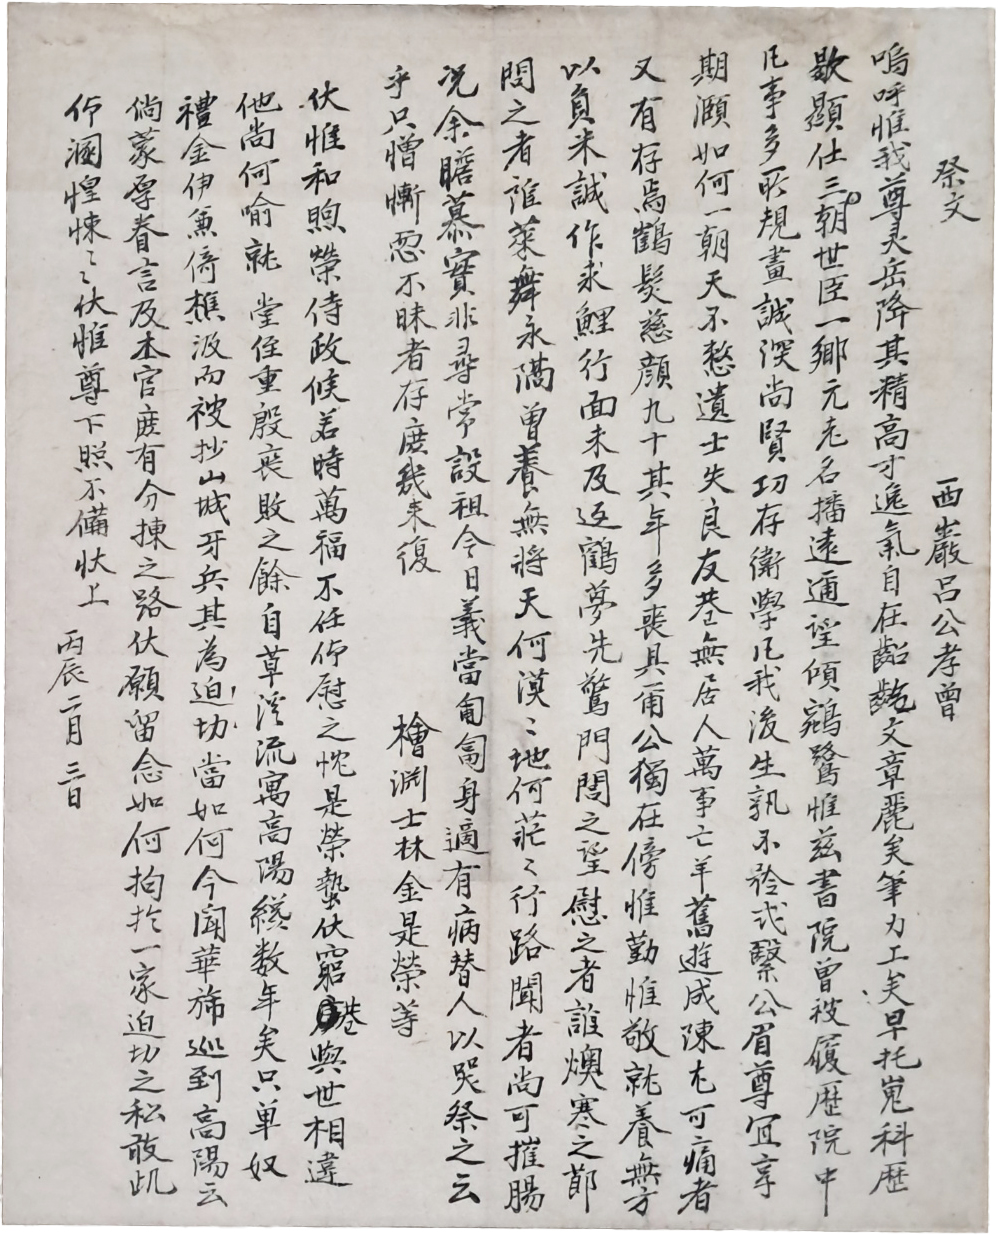 祭文
西巖呂公孝曾
嗚呼惟我尊灵岳降其精高才逸氣自在齠齔文章麗矣筆力工矣早托嵬科歷
敭顯仕三朝世臣一鄉元老名播遠邇望傾鵷鷺惟玆書院曾被履歷院中
凡事多所規畫誠深尚賢功存衛學凡我後生孰不矜式緊公眉尊宜享
期頤如何一朝天不憖遺士失良友巷無居人萬事亡羊舊遊成陳尤可痛者
又有存焉鶴髮慈顔九十其年多喪具甫公獨在傍惟勤惟敬就養無方
以負米誠作求鯉行面未及返鶴夢先驚門閭之望慰之者誰燠寒之節
問之者誰萊舞永隔曾養無將天何漠〻地何茫〻行路聞者尚可摧腸
况余瞻慕實非尋常設祖今日義當匍匐身適有病替人以哭祭之云
乎只憎慚恧不昧者存庶幾来復
檜淵士林金是榮等
伏惟和煦榮侍政候若時萬福不任仰慰之忱是榮蟄伏窮巷與世相違
他尚何喻就堂侄重殷喪敗之餘自草溪流寓高陽纔数年矣只單奴
禮金伊兼倚樵汲而被抄山城牙兵其為迫切當如何今聞華旆巡到高陽云
倘蒙厚眷言及本官庶有分揀之路伏願留念如何拘於一家迫切之私敢此
仰溷惶悚〻〻伏惟尊下照不備狀上
丙辰二月三日